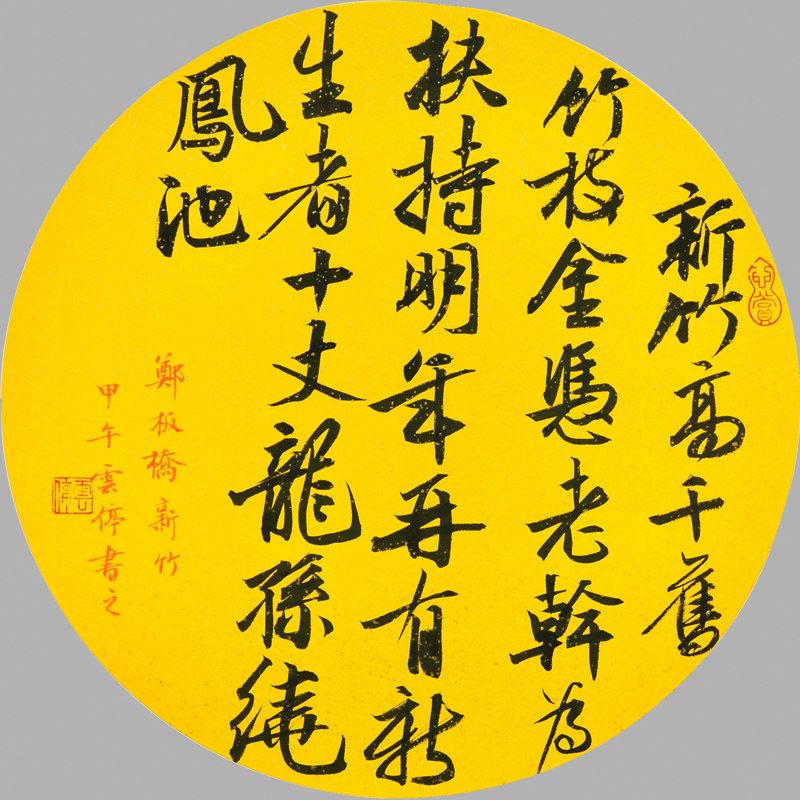 新竹高于舊
竹枝全憑老幹為
扶持明年再有新
生者十丈龍孫繞
鳳池
鄭板橋新竹
甲午雲停書之
雲停